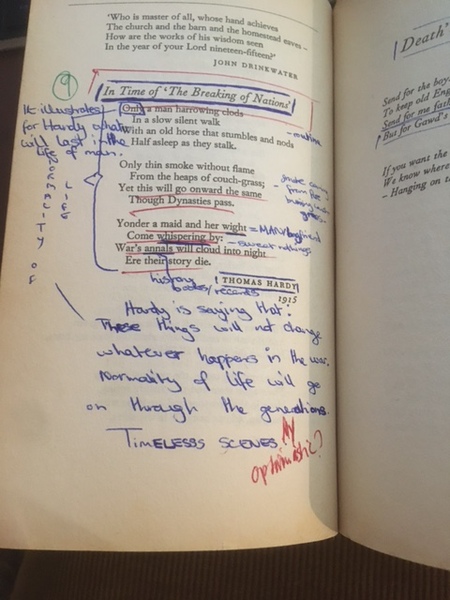 'Who is master of all, whose hand achieves
The church and the barn and the homestead eaves –
How are the works of his wisdom seen
In the year of your Lord nineteen-fifteen?'
JOHN DRINKWATER
9
In Time of 'The Breaking of Nations'
It illustrates
for Hardy what
will last in the
life of man.
NORMALITY OF
LIFE
Only a man harrowing clods
In a slow silent walk
With an old horse that stumbles and nods
Half asleep as they stalk.
- routine
Only thin smoke without flame
From the heaps of couch-grass;
Yet this will go onward the same
Though Dynasties pass.
- smoke coming
from
grass -
Yonder a maid and her wight
= MAN/boyfriend
Come whispering by:
- sweet nothings
War's annals will cloud into night
Ere their story die.
history
books/records
THOMAS HARDY
1915
Hardy is saying that:
These things will not change
whatever happens in the war.
Normality of life will go
on through the generations.
TIMELESS SCENES.
optimistic?
Death'
Send for the boy
To keep old Eng
Send for me fath
But for Gawd's
If you want the
We know where
– Hanging on t